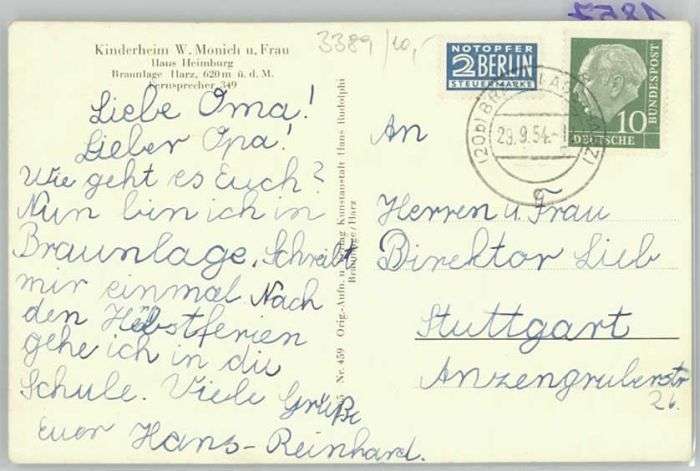 Kinderheim W. Monich u. Frau
Haus Heimburg
Braunlage Harz, 620 m ü. d. M.
Fernsprecher 349
Liebe Oma!
Lieber Opa!
Wie geht es Euch?
Nun bin ich in
Braunlage. Schreibt
mir einmal Nach
den Herbstferien
gehe ich in die
Schule. Viele Grüße
Euer Hans-Reinhard.
Nr. 459 Orig.-Aufn. u. Verlag Kunstanstalt Hans Rudolphi
Braunlage/Harz
3389/10,-
NOTOPFER
2 BERLIN
STEUERMARKE
DEUTSCHE
BUNDESPOST
10
29.9.54
g
An
Herren u. Frau
Direktor Lieb
Stuttgart
Anzengruberstr
26.